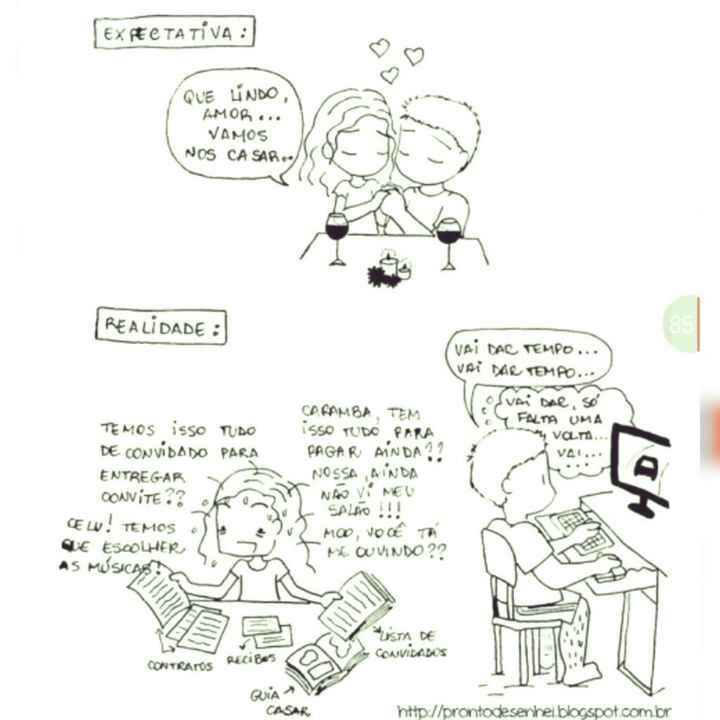 EXPECTATIVA:
QUE LINDO,
AMOR...
VAMOS
NOS CASAR..
REALIDADE:
85
TEMOS ISSO TUDO
DE CONVIDADO PARA
ENTREGAR
CONVITE??
CÉLU! TEMOS
QUE ESCOLHER
AS MÚSICAS!
CARAMBA, TEM
ISSO TUDO PARA
PAGAR AINDA??
NOSSA, AINDA
NÃO VI MEU
SALÃO!!!
MOO, VOCÊ TÁ
ME OUVINDO??
VAI DAR TEMPO...
VAI DAR TEMPO...
VAI DAR, SÓ
FALTA UMA
VOLTA...
VAI...
CONTRATOS
RECIBOS
GUIA
CASAR
LISTA DE
CONVIDADOS
http://prontodesenhei.blogspot.com.br